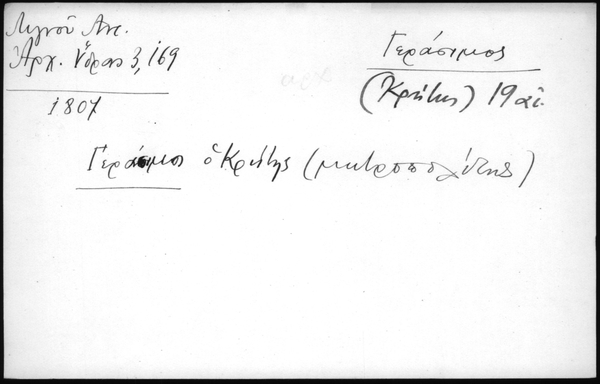 Λιγνοῦ Αντ.
Ἀρχ. Ὕδρας 3, 169
1807
Γεράσιμος
(Κρήτης) 19 αἰ.
αρχ
Γεράσιμος ὁ Κρήτης (μητροπολίτης)